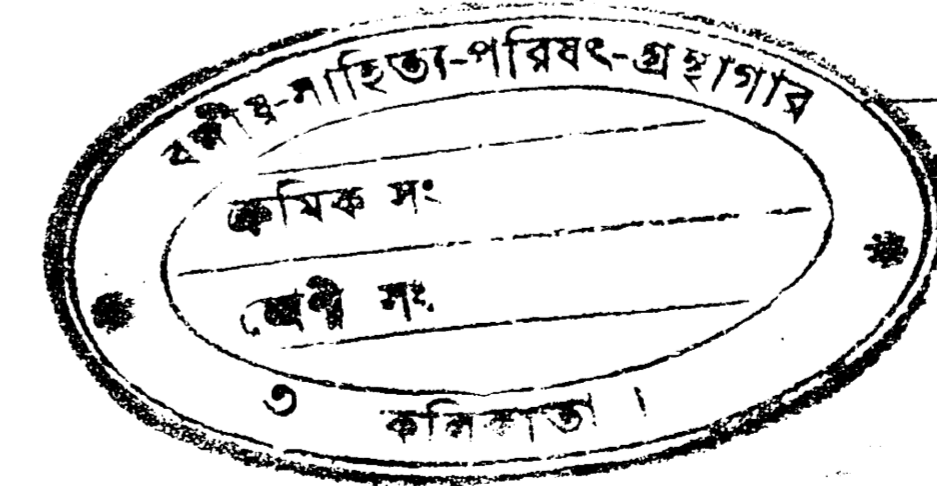 বঙ্গীয়-সাহিত্য-পরিষৎ-গ্রন্থাগার
ক্রমিক সং
শ্রেণী সং
৩
কলিকাতা ।